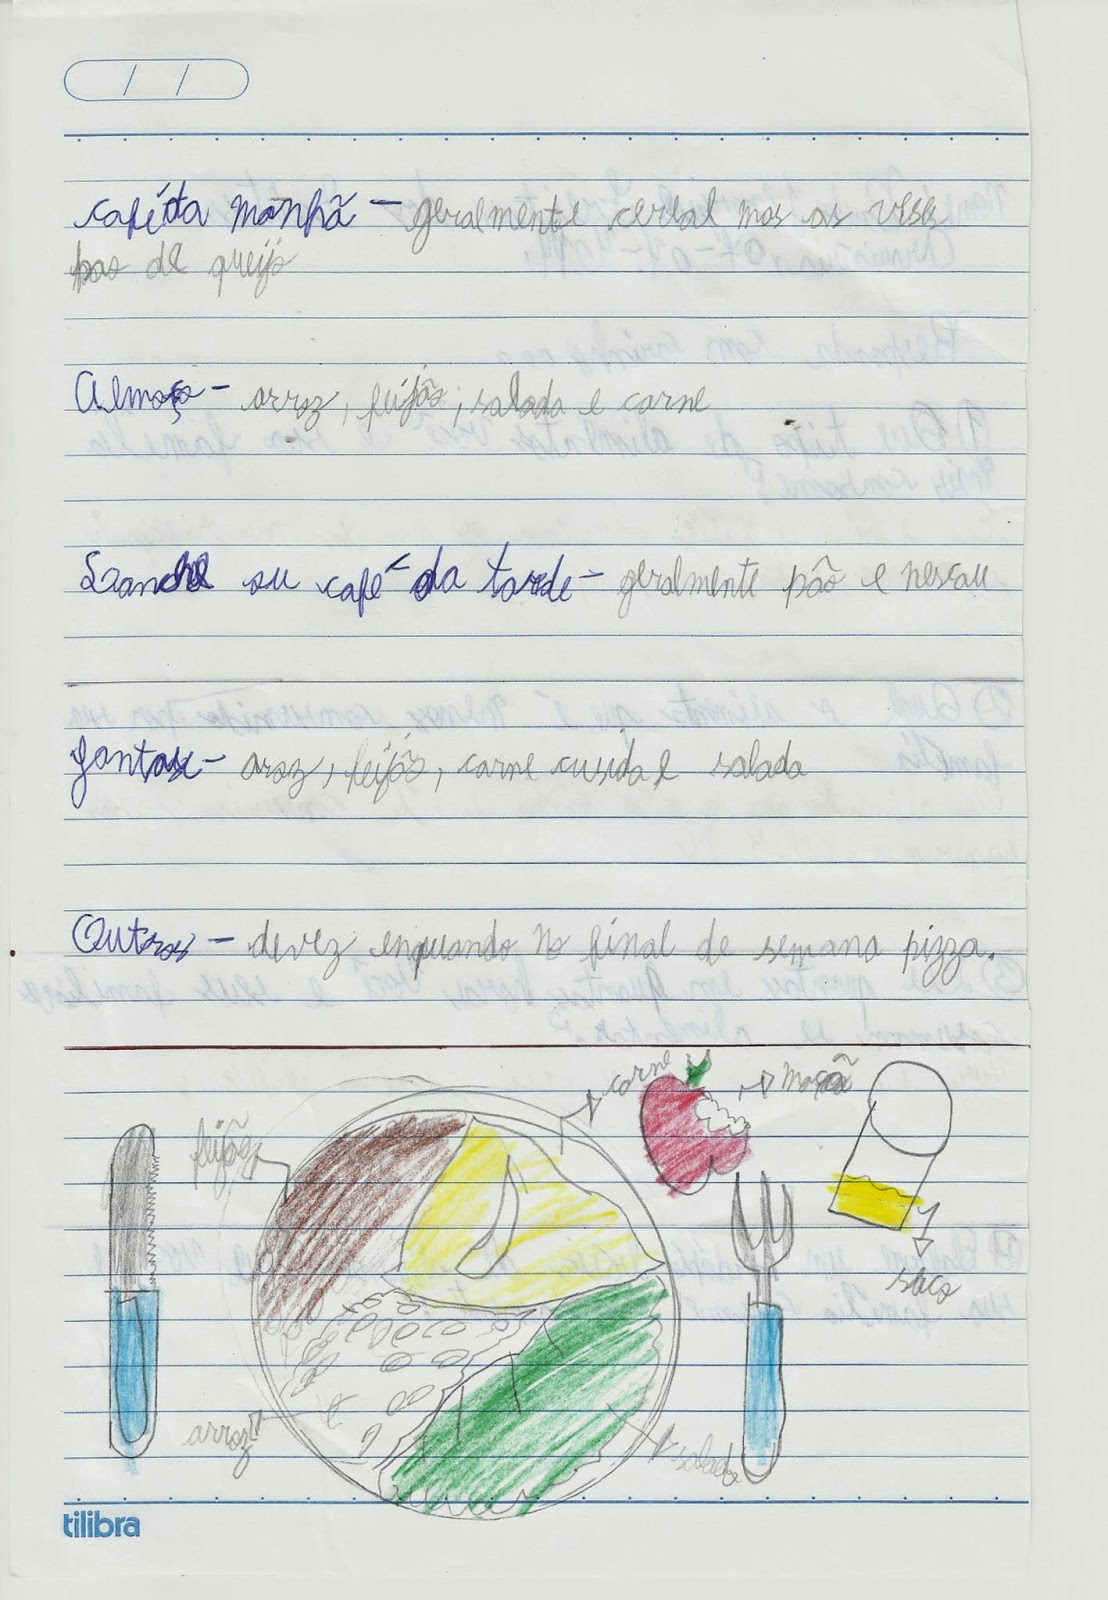 café da manhã - geralmente cereal mas as veses
pao de queijo
Almoço - arroz, feijão, salada e carne
Lanche ou café da tarde - geralmente pão e nescau
Jantar - aroz, feijão, carne cusida e salada
Outros - devez enquando no final de semana pizza.
carne
maçã
feijão
suco
arroz
salada
tilibra